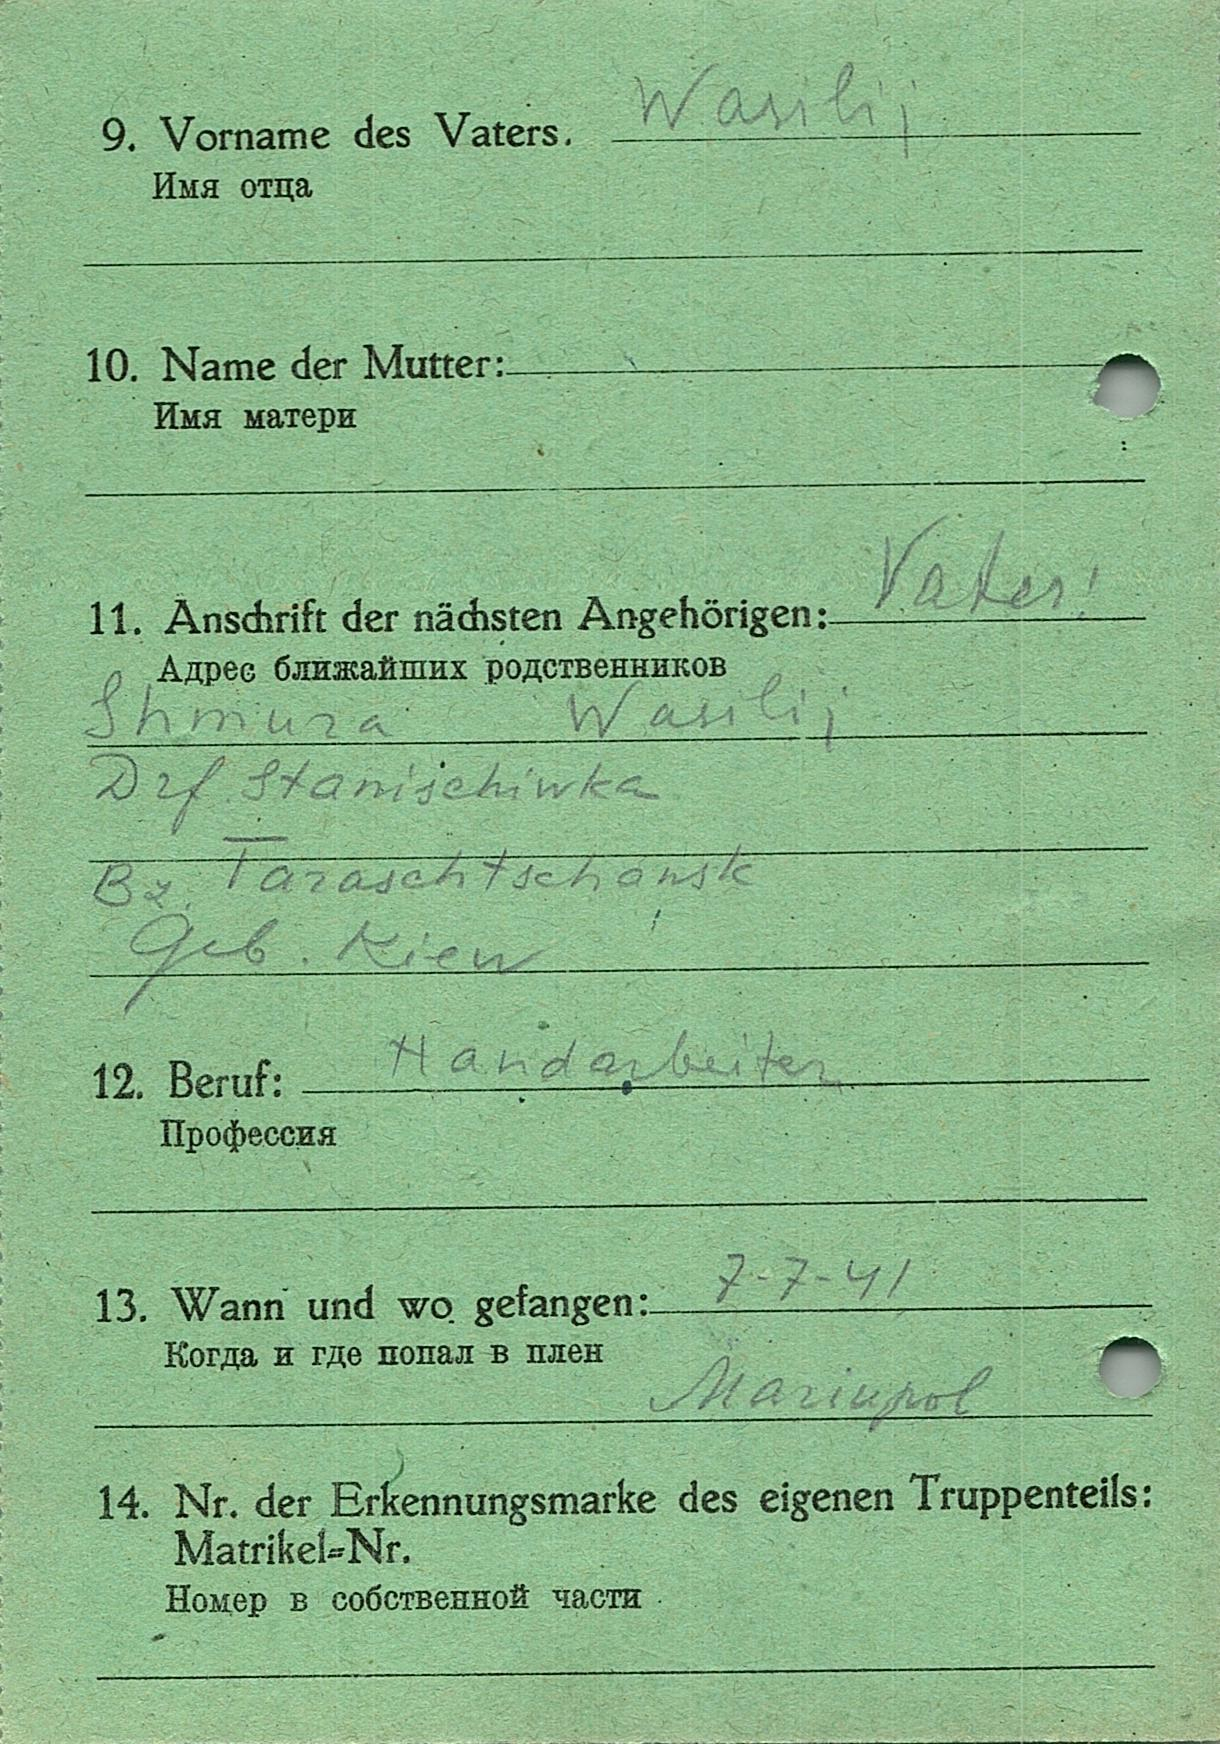 9. Vorname des Vaters. Wasilij
Имя отца
10. Name der Mutter:
Имя матери
11. Anschrift der nächsten Angehörigen: Vater!
Адрес ближайших родственников
Shmura Wasilij
Drf. Stanischiwka
Bz. Taraschtschansk
Geb. Kiew
12. Beruf: Handarbeiter
Профессия
13. Wann und wo gefangen: 7-7-41
Когда и где попал в плен
Mariupol
14. Nr. der Erkennungsmarke des eigenen Truppenteils:
Matrikel-Nr.
Номер в собственной части